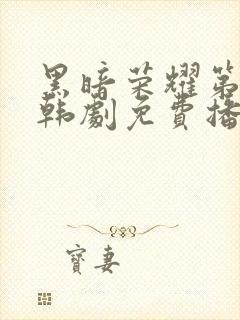 黑暗荣耀第
韩劇免費播
寶妻